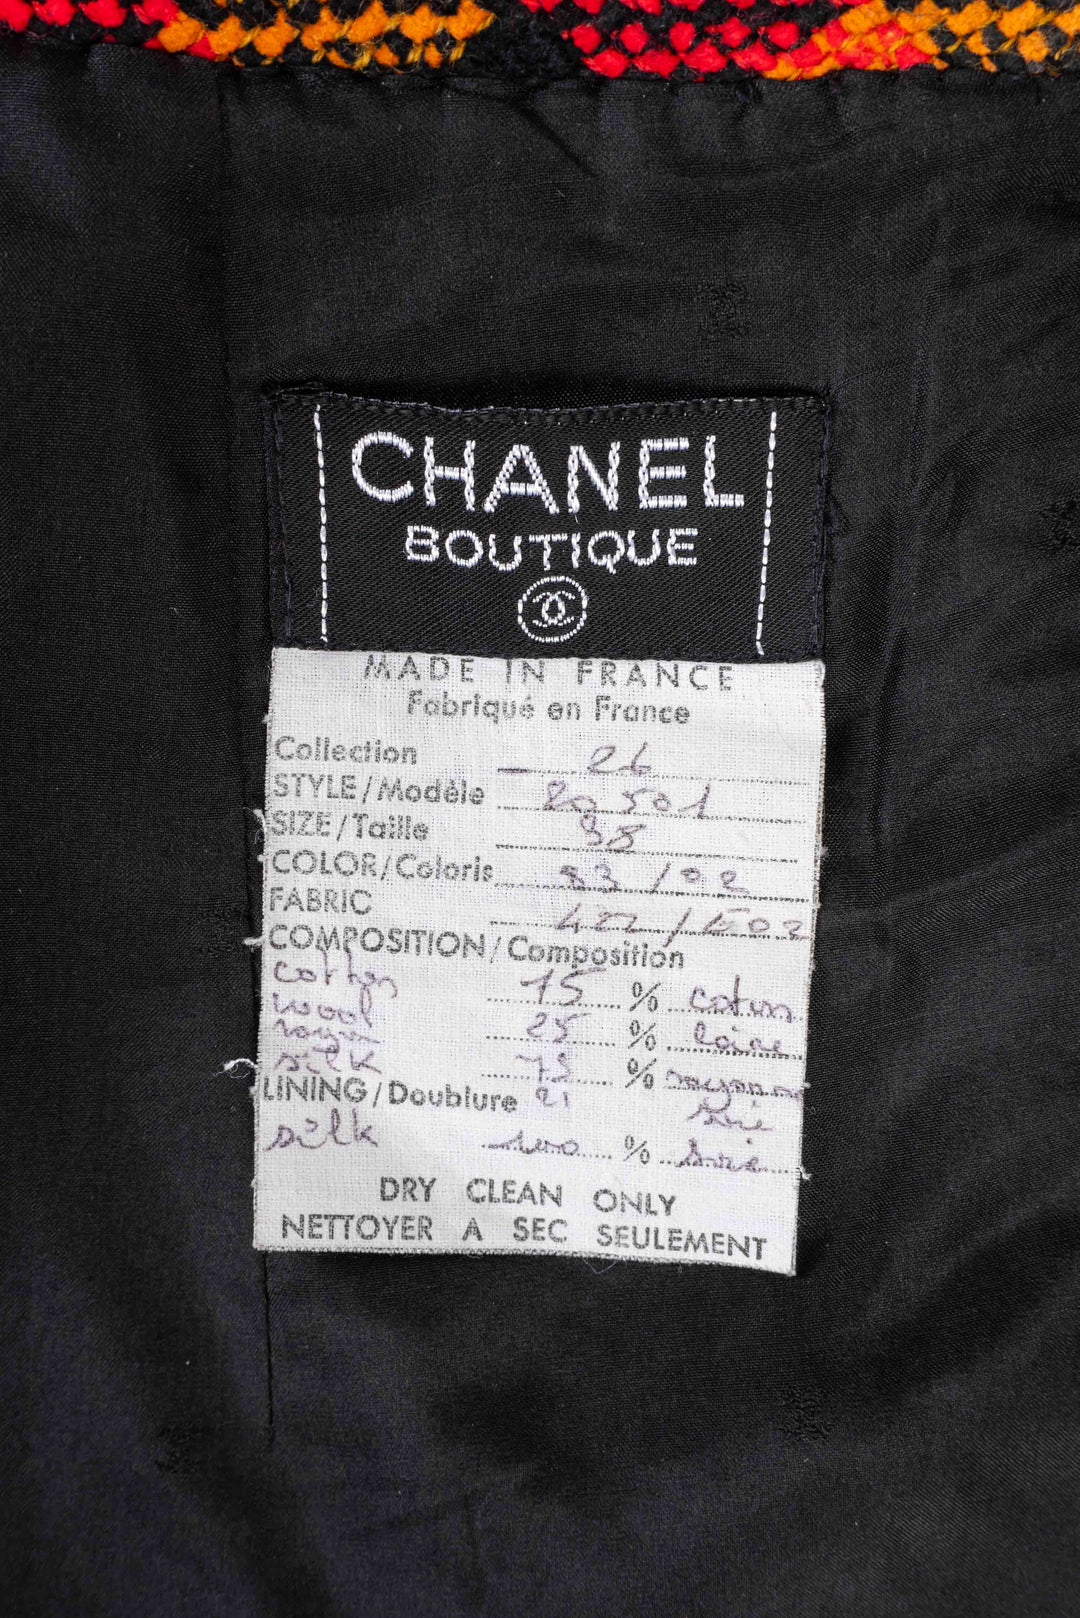 CHANEL
BOUTIQUE
MADE IN FRANCE
Fabriqué en France
Collection 26
STYLE/Modèle 20 501
SIZE/Taille 38
COLOR/Coloris 83/02
FABRIC 422/E02
COMPOSITION/Composition
cotton 15 % coton
wool 25 % laine
%
silk 21 soie
LINING/Doublure
silk 100 % soie
DRY CLEAN ONLY
NETTOYER A SEC SEULEMENT